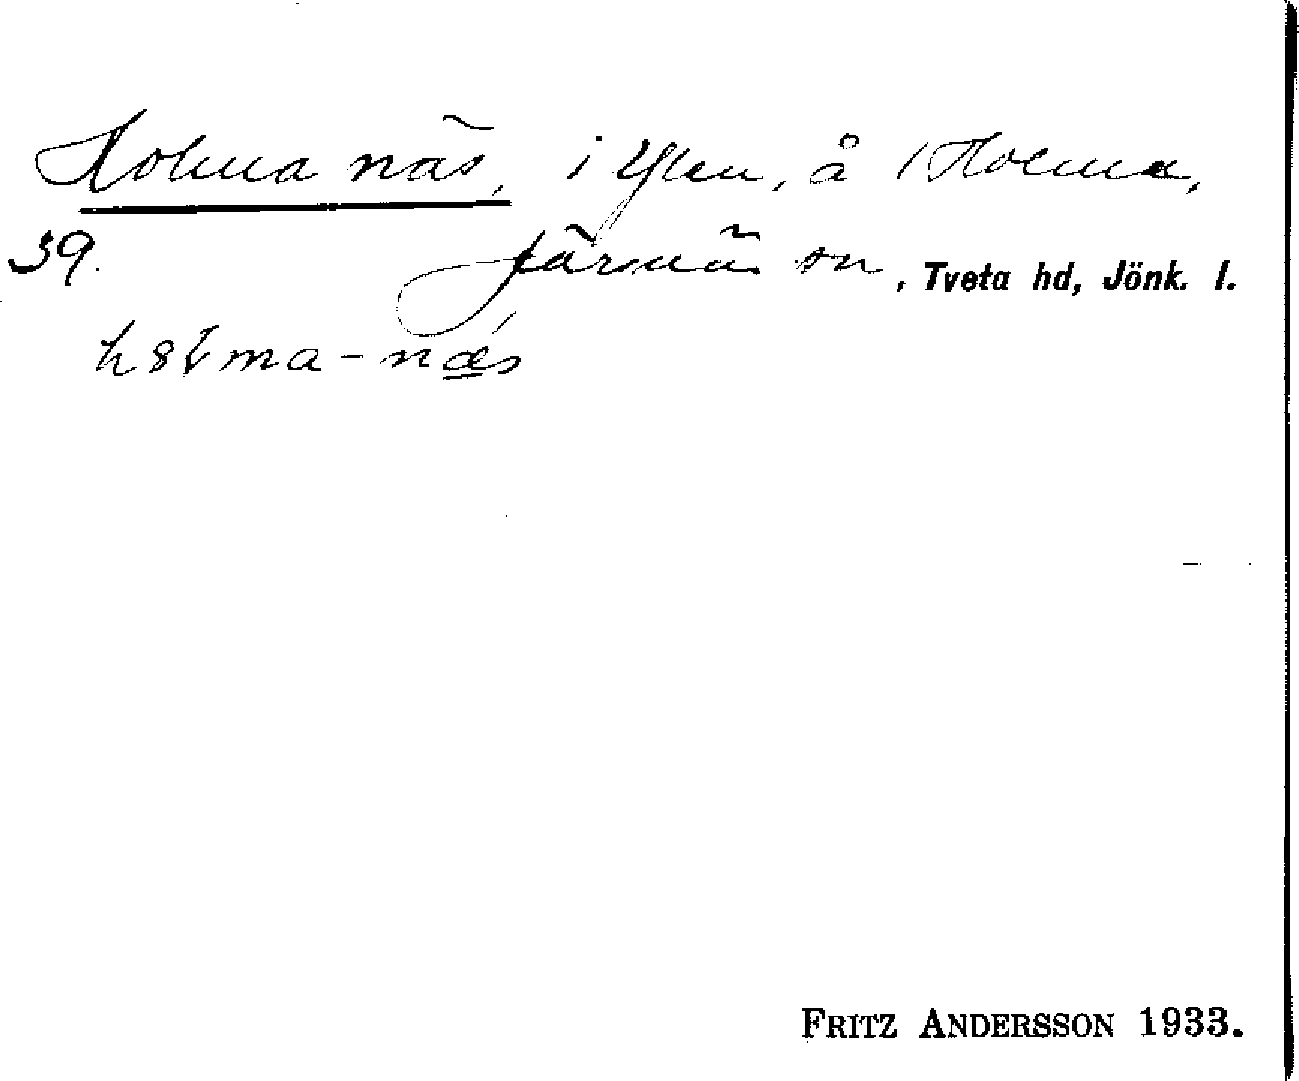 Holma näs, i Ylen, å 1 Holma,
39. Järsnäs sn, Tveta hd, Jönk. l.
h8ɫma-nǽ̱s
FRITZ ANDERSSON 1933.